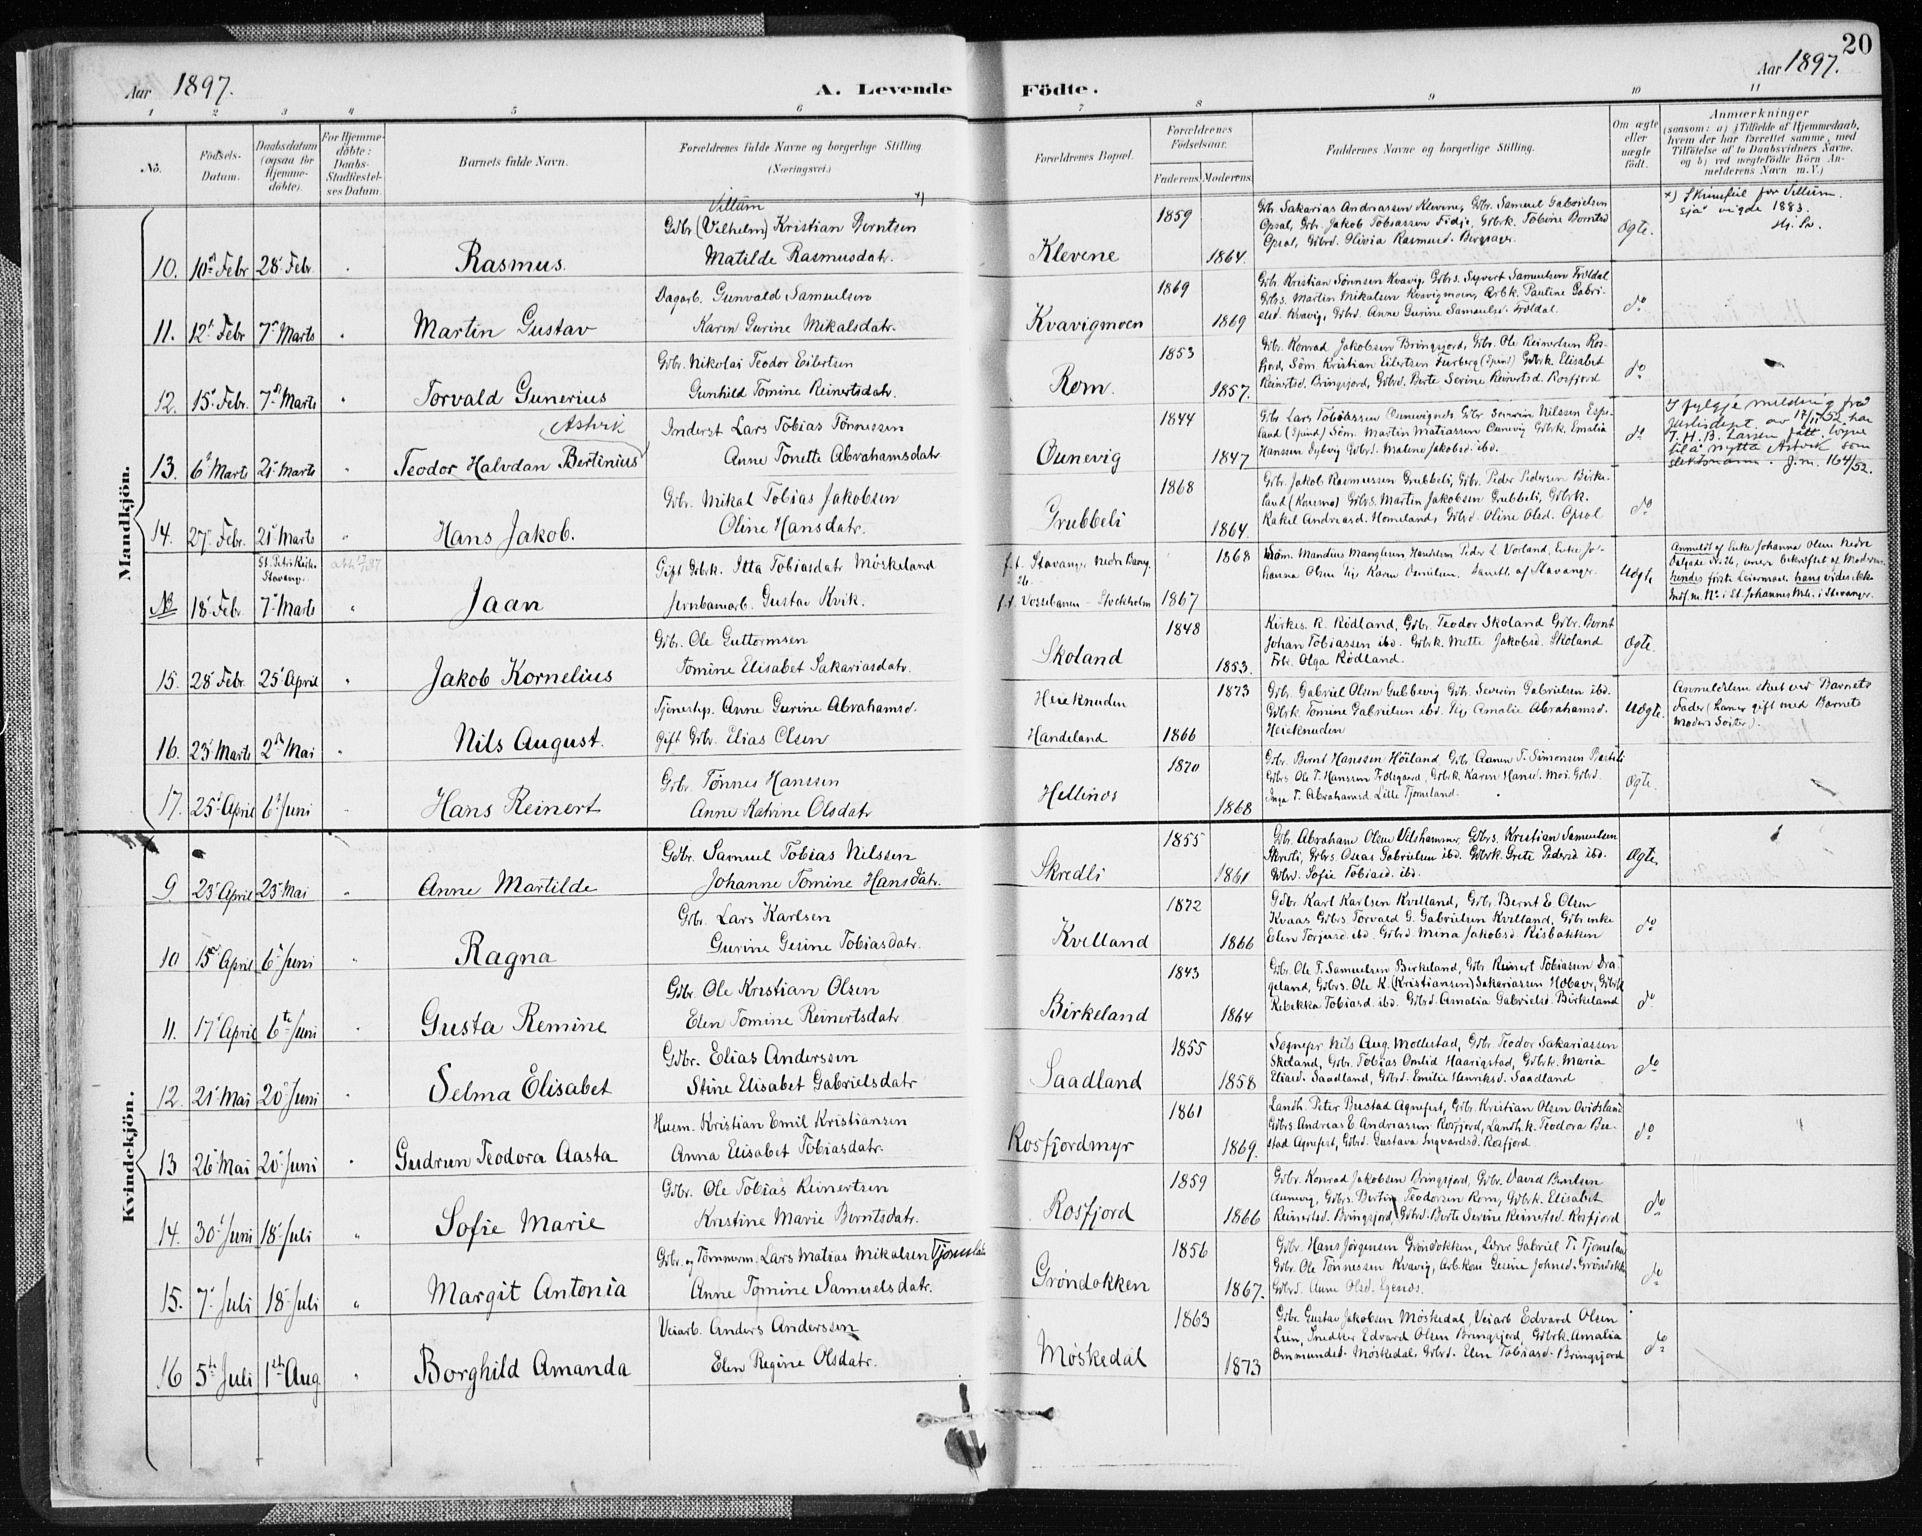 Aar 1897.
A. Levende Födte.
Aar 1897.
20
1 2 3 4 5 6 7 8 9 10 11
No.
Födsels-Datum.
Daabsdatum (ogsaa for Hjemme-döbte).
For Hjemme-döbte: Daabs-Stadfæstel-ses Datum.
Barnets fulde Navn.
Forældrenes fulde Navne og borgerlige Stilling. (Næringsvei.)
Forældrenes Bopæl.
Forældrenes Födselsaar.
Faderens. Moderens.
Faddernes Navne og borgerlige Stilling.
Om ægte eller uægte födt.
Anmærkninger (saasom: a) i Tilfælde af Hjemmedaab, hvem der har forrettet samme, med Tilföielse af to Daabsvidners Navne, og b) ved uægtefödte Börn An-melderens Navn m. V.)
Mandkjön.
Villum
10. 10' Febr 28' Febr. Rasmus.
Gdbr (Vilhelm) Kristian Berntsen x)
Matilde Rasmusdatr.
Klevene 1859 1864.
Gdbr Sakarias Andreassen Klevene, Gdbr. Samuel Gabrielsen
Opsal, Gdbr Jakob Tobiassen Fidje, Gdbrk. Tobine Berntsd
Opsal, Gdbrd. Olivia Rasmusd. Bergsager.
Ægte.
x) Skrivefeil for Villum.
sjå vigde 1883.
11. 12' Febr 7' Marts Martin Gustav
Dagarb. Gunvald Samuelsen
Karen Gurine Mikalsdatr.
Kvavigmoen 1869 1869
Gdbr Kristian Tönnesen Kvavig, Gdbrs. Syvert Samuelsen Troldal
Gdbrs. Martin Mikalsen Kvavigmoen, Arbk. Pauline Gabri-
elsd. Kvavig, Gdbrd. Anne Gurine Samuelsd. Troldal.
do
12. 15' Febr. 7' Marts Torvald Gunerius
Gdbr. Nikolai Teodor Eilertsen
Gunhild Tomine Reinertsdatr.
Rom. 1853 1857.
Gdbr. Konrad Jakobsen Bringsjord, Gdbr. Ole Reinertsen Ros-
fjord, Söm. Kristian Eilertsen Furberg (Spind) Gdbrk. Elisabet
Reinertsd. Bringsjord, Gdbrd. Berte Serine Reinertsd. Rosfjord
do
Astvik
13. 6' Marts 21' Marts Teodor Halvdan Bertinius
Inderst Lars Tobias Tönnessen
Anne Tonette Abrahamsdatr
Ounevig 1844 1847
Gdbr Lars Tobiassen Ounevignes Gdbr. Severin Nilssen Espe-
land (Spind) Söm. Martin Matiassen Ounevig Gdbrk. Emalia
Hanssen Dybvig Gdbrd. Malene Jakobsd. ibd.
do
I fylgje melding frå
Justisdept. av 17/11 52 har
T. H. B. Larsen fått løyve
til å nytta Astvik som
slektsnamn. J.nr. 164/52.
14. 27' Febr. 21' Marts Hans Jakob.
Gdbr. Mikal Tobias Jakobsen
Oline Hansdatr.
Grubbeli 1868 1864.
Gdbr. Jakob Rasmussen Grubbeli, Gdbr. Peder Pedersen Birke-
land Gdbrs. Martin Jakobsen Grubbeli, Gdbrk.
Rakel Andreasd. Homeland, Gdbrd. Oline Olsd. Opsal
do
St. Petri Kirke Stavang.
No 18' Febr 7' Marts Jaan
Gift Gdbrk. Itta Tobiasdatr Möskeland
Jernbanearb. Gustav Kvik.
f.t. Stavanger Nedre Baneg. 26.
f.t. Vossebanen - Stockholm
1868 1867
Söm. Mandius Peder L Vorland, Enke Jo-
hanna Olsen Pige Karen Danielsen. samtl. af Stavanger.
Uægte
Anmeldt af Enke Johanna Olsen Nedre
15. 28' Febr. 25' April Jakob Kornelius
Gdbr. Ole Guttormsen
Tomine Elisabet Sakariasdatr.
Skoland 1848 1853.
Kirkes. R. Rödland, Gdbr. Teodor Skoland Gdbr. Bernt
Johan Tobiassen ibd. Gdbrk. Mette Jakobsd. Skoland
Frk. Olga Rödland.
Ægte.
16. 23' Marts 2' Mai Nils August.
Tjenestep. Anne Gurine Abrahamsd.
Gift Gdbr. Elias Olsen
Heieknuden
Handeland
1873 1866
Gdbr. Gabriel Olsen Gubbevig Gdbr. Severin Gabrielsen ibd.
Gdbrk. Tomine Gabrielsen ibd. Pige Amalie Abrahamsd.
Heieknuden
Uægte.
Anmeldelsen skeet ved Barnets
Fader (han er gift med Barnets
Moders Söster).
17. 25' April 6' Juni Hans Reinert
Gdbr. Tönnes Hanssen
Anne Katrine Olsdatr
Hellenes 1870 1868
Gdbr. Bernt Hanssen Höiland Gdbr Aanen T. Simonsen
Gdbrs Ole T. Hanssen Gdbrk Karen Hansd. Moi Gdbrd.
Inga T. Abrahamsd. Lille Tjomeland.
Ægte.
Kvindekjön.
9. 23' April 23' Mai Anne Martilde
Gdbr. Samuel Tobias Nilssen
Johanne Tomine Hansdatr.
Skredli 1855 1861
Gdbr. Abraham Olsen Ulshammer, Gdbrs. Kristian Samuelsen
Skredli, Gdbrs Oscar Gabrielsen ibd. Gdbrk. Grete Pedersd ibd.
Gdbrd. Sofie Tobiasd. ibd.
Ægte
10 15' April 6' Juni Ragna
Gdbr. Lars Karlsen
Gurine Gesine Tobiasdatr.
Kvelland 1872 1866
Gdbr Karl Karlsen Kvelland, Gdbr. Bernt E Olsen
Kvaas Gdbrs. Torvald G. Gabrielsen Kvelland, Gdbrenke
Elen Torjusd. ibd. Gdbrd Mina Jakobsd. Risbakken
do
11. 17' April 6te Juni Gusta Remine
Gdbr. Ole Kristian Olsen
Elen Tomine Reinertsdatr
Birkeland 1843 1864
Gdbr. Ole T. Samuelsen Birkeland, Gdbr Reinert Tobiassen Dra-
geland, Gdbrs. Ole K (Kristiansen) Sakariassen Gdbrk
Rebekka Tobiasd. ibd. Gdbrd Amalia Gabrielsd. Birkeland
do
12. 21' Mai 20' Juni Selma Elisabet
Gdbr. Elias Anderssen
Stine Elisabet Gabrielsdatr
Saadland 1855 1858
Sognepr Nils Aug. Mollestad, Gdbr Teodor Sakariassen
Skoland, Gdbr. Tobias Omlid Haarigstad, Gdbrk. Maria
Eliasd. Saadland, Gdbrd. Emilie Henriksd. Saadland
do
13 26' Mai 20' Juni Gudrun Teodora Aasta
Husm. Kristian Emil Kristiansen
Anna Elisabet Tobiasdatr.
Rosfjordmyr 1861 1869.
Landh. Peter Bustad Agnefest, Gdbr. Kristian Olsen Ovidsland
Gdbrs. Andreas E Andreassen Rosfjord, Landh.k. Teodora Bu-
stad Agnefest, Gdbrd. Gustava Ingvardsd. Rosfjord
do
14. 30' Juni 18' Juli Sofie Marie
Gdbr. Ole Tobias Reinertsen
Kristine Marie Berntsdatr.
Rosfjord 1859 1866
Gdbr. Konrad Jakobsen Bringsjord, Gdbr. David Berntsen
Aunevig, Gdbrs. Bertin Teodorsen Rom, Gdbrk. Elisabet
Reinertsd. Bringsjord, Gdbrd. Berte Serine Reinertsd. Rosfjord
do
15. 7' Juli 18' Juli Margit Antonia
Gdbr. og Tömmerm. Lars Matias Mikalsen Tjomsland
Anne Tomine Samuelsdatr.
Gröndokken 1856 1867.
Gdbr. Hans Jörgensen Gröndokken, Lærer Gabriel T. Tjomsland
Gdbr. Ole Tönnessen Kvavig, Arb.kone Gesine Johnsd. Gröndokk
Gdbrd. Anne Olsd. Egenes.
do
16 5te Juli 1ste Aug Borghild Amanda
Veiarb. Anders Anderssen
Elen Regine Olsdatr.
Möskedal 1863 1873
Gdbr. Gustav Jakobsen Möskedal, Veiarb Edvard Olsen
Lien, Snedker Edvard Olsen Bringsjord, Gdbrk. Amalia
Ommundsd. Möskedal, Gdbrd. Elen Tobiasd. Bringsjord
do